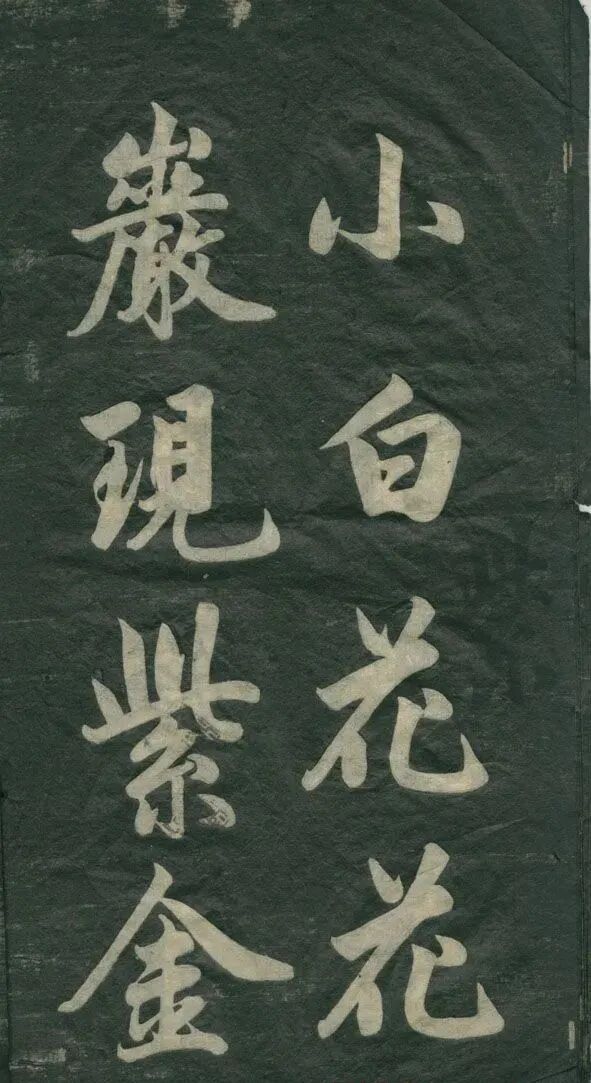 小白花花
巖現紫金